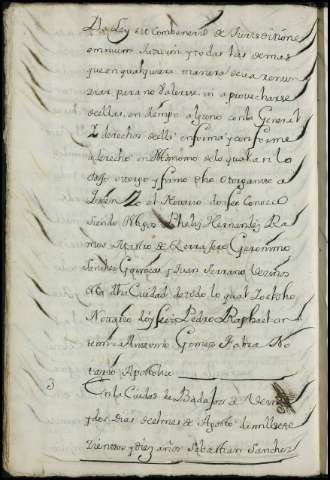 La Ley sit Combenerid de Jurisditione
omnium Judicun y todas las demas
que en qualquiera manera deva renun
ziar para no Valerse ni aprovecharse
de ellas en tiempo alguno con la General
y derechos de ella en forma y conforme
a derecho en testimonio de lo qual an lo
dijo otorgo y firmo dho otorgante a
quien Yo el Notario doy fee Conozco
siendo testigos Phelix Hernandez Ra
mos Maestro de Herrajero Geronimo
Sanchez y Juan Serrano Vezinos
de esta dha Ciudad de todo lo qual Yo el dho
Notario doy fee Pedro Raphael an
temi Antonio Gomez Fabra No
tario Apostolico
En la Ciudad de Badajoz a Veinte
y dos dias del mes de Agosto de mill sete
zientos y diez años Sebastian Sanchez